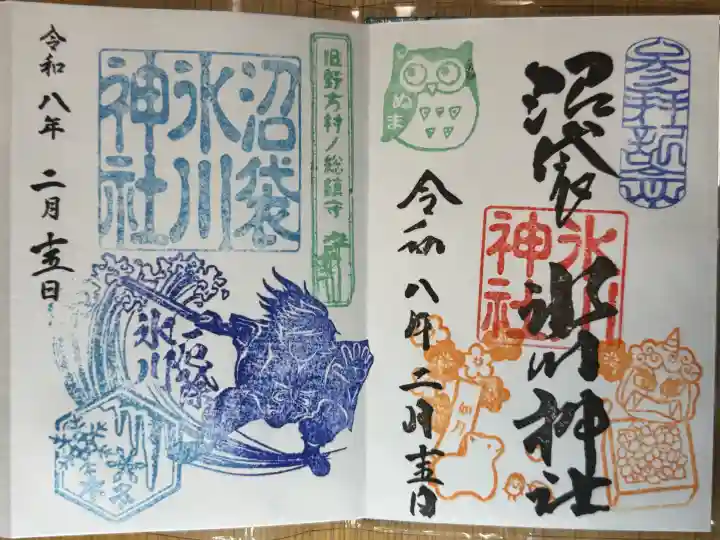 参拝記念
沼袋
氷川神社
氷川
神社
ぬま
令和八年二月十五日
如月
旧野方村ノ総鎮守
沼袋
氷川
神社
氷川
令和八年二月十五日